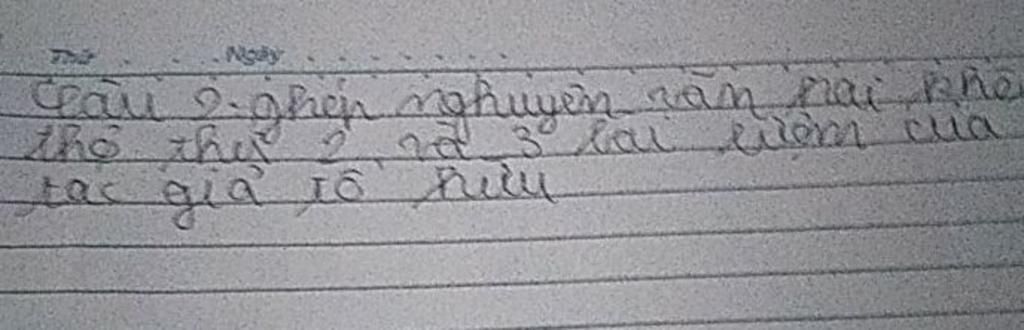 Thứ . . . Ngày . . . . . . .
Câu 2. ghép nghuyên văn hai khổ
thơ thứ 2 và 3 bài lượm của
tác giả tố hữu